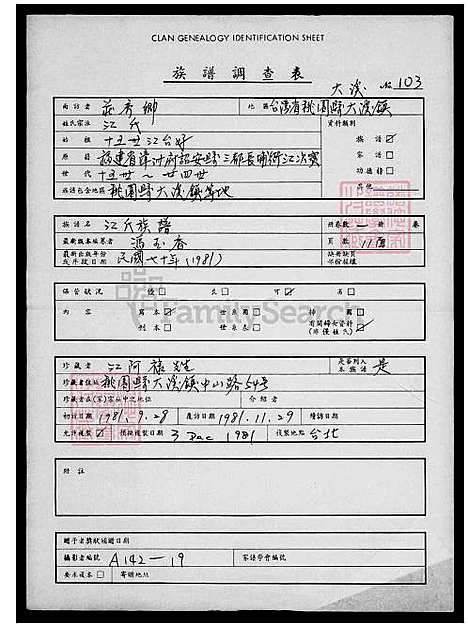 CLAN GENEALOGY IDENTIFICATION SHEET
族譜調查表
大溪 No. 103
訪者 莊秀卿 地區 台灣省桃園縣大溪鎮
姓氏宗派 江氏 資料類別
始祖 十五世江台好 族譜 ☑
原籍 福建省漳州府詔安縣三都 家譜 ☐
世代 十五世~廿四世 功德榜 ☐
譜包含地區 桃園縣大溪鎮等地 其他
族譜名 江氏族譜 冊卷數 一 冊 卷
最新版本編纂者 馮玉香 頁數 11面
最新出版年份或年段日期 民國七十年(1981) 缺冊缺頁
保管狀況 優 ☐ 良 ☐ 可 ☑ 劣 ☐
內容 寫本 ☑ 世系圖 ☐ 神圖 ☐
刊本 ☐ 世系表 ☐ 有關婦女資料 ☐
FamilySearch
珍藏者 江阿祿先生 是否列入本族譜 是
珍藏者住址 桃園縣大溪鎮中山路54号
珍藏者在(家)宗祠中之地位 介紹者
初訪日期 1981.9.28 複訪日期 1981.11.29 續訪日期
允許複製 ☑ 預擬複製日期 3 Dec 1981 複製地點 台北
附註
贈予者獎狀頒贈日期
攝影者編號 A142-19 家譜學會編號
要求複本 ☐ 寄贈地址